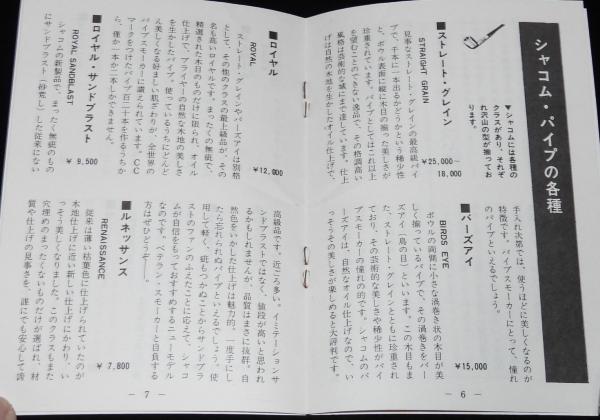 シャコム・パイプの各種
▼シャコムには各種の
クラスがあり、それぞ
れ沢山の型が揃ってお
ります。
■ストレート・グレイン
STRAIGHT GRAIN
¥25,000〜
18,000
見事なストレート・グレインの最高級パイ
プで、千本に一本出るかどうかという稀少性
と、ボウル表面に縦に木目が揃った美しさが
珍重されています。パイプとしてはこれ以上
を望むことのできない逸品で、その格調高い
風格は芸術的な域にまで達しています。仕上
げは自然の木地を生かしたオイル仕上げで、
手入れ次第では、使うほどに美しくなるのが
特徴です。パイプスモーカーにとって、憧れ
のパイプといえるでしょう。
■バーズアイ
BIRDS EYE
¥15,000
ボウルの両側に小さな渦巻き状の木目が美
しく揃っているパイプで、その渦巻きをバー
ズアイ(鳥の目)といいます。この木目もま
た、ストレート・グレインとともに珍重され
ており、その芸術的な美しさや稀少性がパイ
プスモーカーの憧れの的です。シャコムのバ
ーズアイは、自然なオイル仕上げなので、い
っそうその美しさが楽しめると大評判です。
— 6 —
■ロイヤル
ROYAL
¥12,000
ストレート・グレインやバーズアイは別格
として、その他のクラスの最上級品が、その
名も高いロイヤルです。まったくの無疵で、
精選された木目のものだけに限られ、オイル
仕上げで、ブライヤーの自然な木地の美しさ
を生かしたパイプ。使っているうちにどんど
ん美しくなる好ましい肌ざわりが、全世界の
パイプスモーカーに讃えられています。CC
マークをつけたパイプ百二十本を作るうちか
ら、僅か一本か二本しかできません。
■ロイヤル・サンドブラスト
ROYAL SANDBLAST
¥ 9,500
シャコムの新製品で、まったく無疵のもの
にサンドブラスト(砂荒し)した従来にない
高級品です。近ごろ多い。イミテーションサ
ンドブラストではなく、値段が高いと思われ
るかもしれませんが、品質はまさに抜群。自
然色をいかした仕上げは魅力的、一度手にし
たら忘れられぬパイプといえるでしょう。使
用して軽く、疵もつかぬことからサンドブラ
ストのファンのふえたことに応えて、シャコ
ムが自信をもっておすすめするニューモデル
なのです。ベテラン・スモーカーと自負する
方はぜひどうぞ……。
■ルネッサンス
RENAISSANCE
¥ 7,800
従来は薄い枯葉色に仕上げられていたのが
木地仕上げに近い新しい仕上げにかわり、い
っそう美しくなりました。このクラスもまた
穴埋めのまったくないものだけが選ばれ、材
質や仕上げの見事さを、誰にでも安心して誇
— 7 —